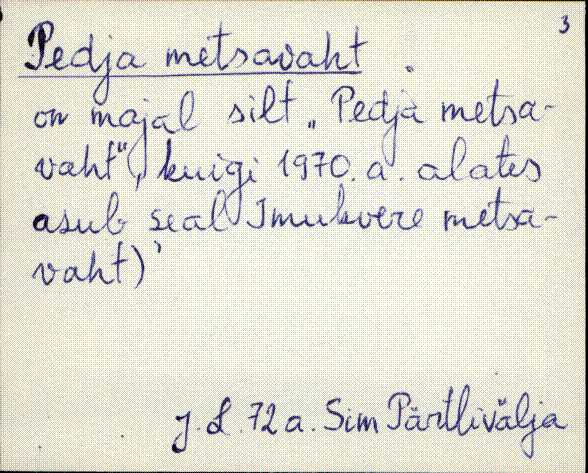 3
Pedja metsavaht.
on majal silt „Pedja metsa-
vaht“, kuigi 1970. a. alates
asub seal Imukvere metsa-
vaht)
J. L. 72 a. Sim Pärtlivälja